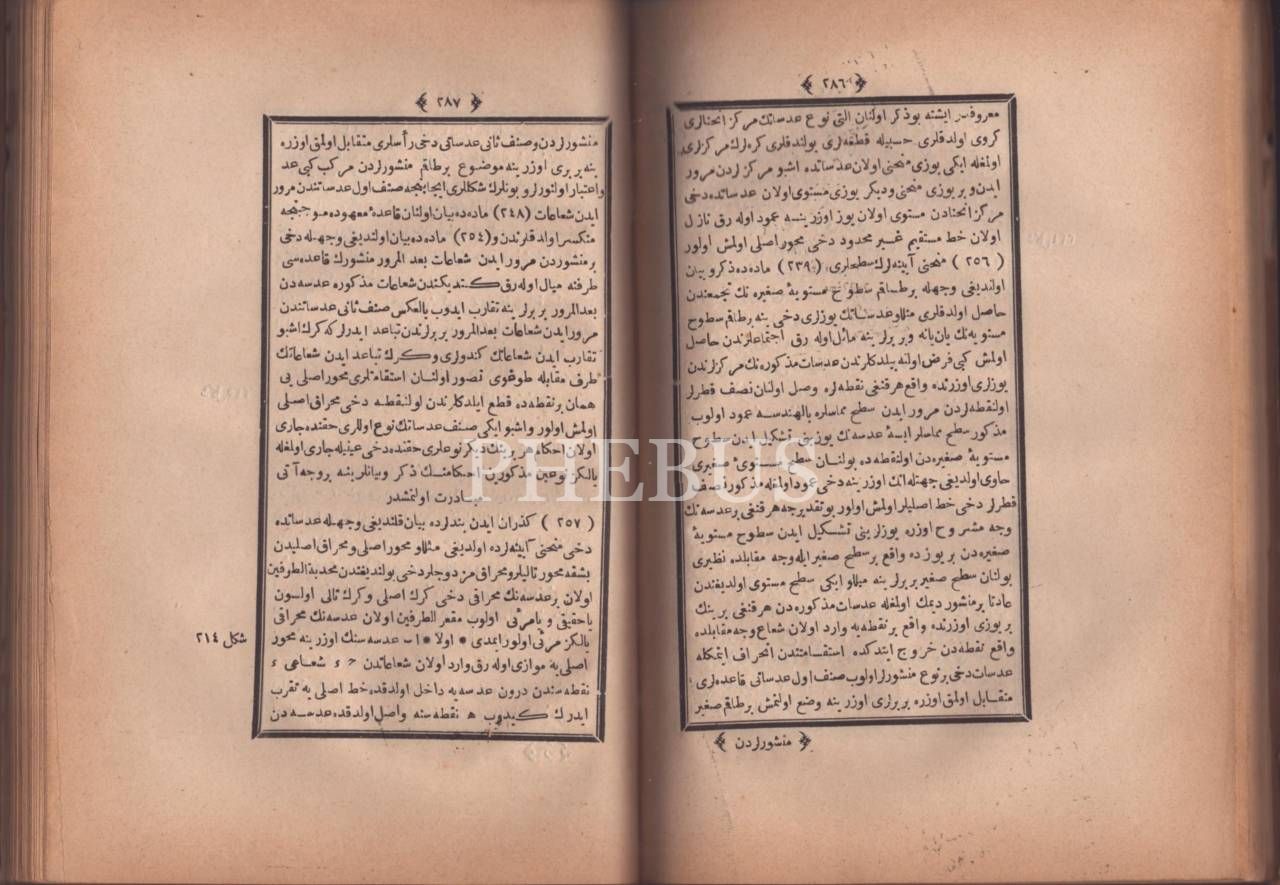 ٢٨٦
معروفدر ایشته بوذکر اولنان التی نوع عدساتك مرکز انحنالری
کروی اولدقلری حسبیله قطعه‌لری بولندقلری کره‌لرك مرکزلری
اولمغله ایکی یوزی منحنی اولان عدساتده اشبو مرکزلردن مرور
ایدن و بر یوزی منحنی و دیکر یوزی مستوی اولان عدساتده دخی
مرکز انحنادن مستوی اولان یوز اوزرینه عمود اوله رق نازل
اولان خط مستقیم غیر محدود دخی محور اصلی اولمش اولور
( ٢٥٦ ) منحنی آیینه‌لرك سطحلری ( ٢٣٩ ) ماده‌ده ذکر و بیان
اولندیغی وجهله برطاقم سطوح مستویهٔ صغیره نك تجمعندن
حاصل اولدقلری مثللو عدساتك یوزلری دخی ینه برطاقم سطوح
مستویه‌نك یان یانه و بربرلرینه مائل اوله رق اجتماعلرندن حاصل
اولمش کبی فرض اولنه بیلدکلرندن عدسات مذکوره‌نك مرکزلرندن
یوزلری اوزرنده واقع هرقنغی نقطه‌لره وصل اولنان نصف قطرلر
اولنقطه‌لردن مرور ایدن سطح مماسلره بالهندسه عمود اولوب
مذکور سطح مماسلر ایسه عدسه نك یوزینی تشکیل ایدن سطوح
مستویهٔ صغیره‌دن اولنقطه ده بولنان سطح مستوئ صغیری
حاوی اولدیغی جهتله انك اوزرینه دخی عمود اولمغله مذکور نصف
قطرلر دخی خط اصلیلر اولمش اولور بوتقدیرجه هرقنغی بر عدسه نك
وجه مشروح اوزره یوزلرینی تشکیل ایدن سطوح مستویهٔ
صغیره‌دن بر یوزده واقع بر سطح صغیر ایله وجه مقابلده نظیری
بولنان سطح صغیر بربرلرینه میللو ایکی سطح مستوی اولدیغندن
عادتا برمنشور دیمك اولمغله عدسات مذکوره‌دن هرقنغی برینك
بر یوزی اوزرنده واقع بر نقطه‌یه وارد اولان شعاع وجه مقابلده
واقع نقطه‌دن خروج ایتدکده استقامتندن انحراف ایتمکله
عدسات دخی بر نوع منشورلر اولوب صنف اول عدساتی قاعده‌لری
متقابل اولمق اوزره بربرلری اوزرینه وضع اولنمش برطاقم صغیر
منشورلردن
٢٨٧
منشورلردن و صنف ثانی عدساتی دخی رأسلری متقابل اولمق اوزره
ینه بربری اوزرینه موضوع برطاقم منشورلردن مرکب کبی عد
و اعتبار اولنورلر و بونلرك شکللری ایجابنجه صنف اول عدساتندن مرور
ایدن شعاعات (٢٤٨) ماده‌ده بیان اولنان قاعدهٔ معهوده موجبنجه
منکسر اولدقلرندن و (٢٥٤) ماده‌ده بیان اولندیغی وجهله دخی
برمنشوردن مرور ایدن شعاعات بعد المرور منشورك قاعده‌سی
طرفنه میال اوله رق کتدیکندن شعاعات مذکوره عدسه‌دن
بعدالمرور بربرلرینه تقارب ایدوب بالعکس صنف ثانی عدساتندن
مرورایدن شعاعات بعدالمرور بربرلرندن تباعد ایدرلر که کرك اشبو
تقارب ایدن شعاعاتك کندولری و کرك تباعد ایدن شعاعاتك
طرف مقابله طوغری تصور اولنان استقامتلری محور اصلی یی
همان برنقطه ده قطع ایلدکلرندن اولنقطه دخی محراق اصلی
اولمش اولور و اشبو ایکی صنف عدساتك نوع اوللری حقنده جاری
اولان احکام هر برینك دیکر نوعلری حقنده دخی عینیله جاری اولمغله
یالکز نوعین مذکورین احکامنك ذکر و بیانلرینه بروجه آتی
مبادرت اولنمشدر
( ٢٥٧ ) کذران ایدن بندلرده بیان قلندیغی وجهله عدساتده
دخی منحنی آیینه‌لرده اولدیغی مثللو محور اصلی و محراق اصلیدن
بشقه محور تالیلر و محراق مزدوجلر دخی بولندیغندن محدبة الطرفین
اولان برعدسه نك محراقی دخی کرك اصلی و کرك تالی اولسون
یا حقیقی و یا مرئی اولوب مقعر الطرفین اولان عدسه نك محراقی
یالکز مرئی اولور ایمدی * اولا * ا ب عدسه سنك اوزرینه محور
شکل ٢١٤
اصلی یه موازی اوله رق وارد اولان شعاعاتدن ح د شعاعی د
نقطه سندن درون عدسه یه داخل اولدقده خط اصلی یه تقرب
ایدرك کیدوب ه نقطه سنه واصل اولدقده عدسه دن
PHEBUS